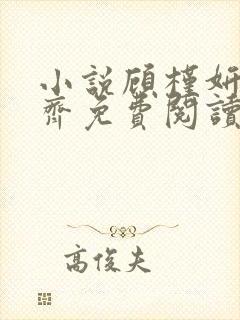 小説顾槿妍
齊免費閱讀
高俊夫